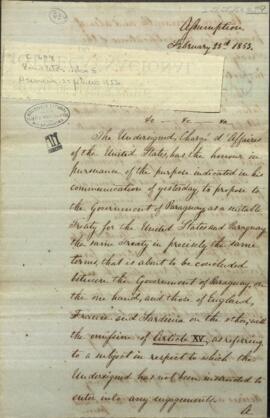 Assumption
February 23d 1853.
The Undersigned, Chargé d'Affaires
of the United States, has the honour in
pursuance of the purpose indicated in his
communication of yesterday to propose to
the Government of Paraguay as a suitable
Treaty for the United States and Paraguay
the same Treaty in precisely the same
terms, that is about to be concluded
between the Government of Paraguay, on
the one hand, and those of England,
France and Sardinia on the other, with
the omission of Article XV, as referring
to a subject in respect to which the
Undersigned has not been instructed to
enter into any engagements.